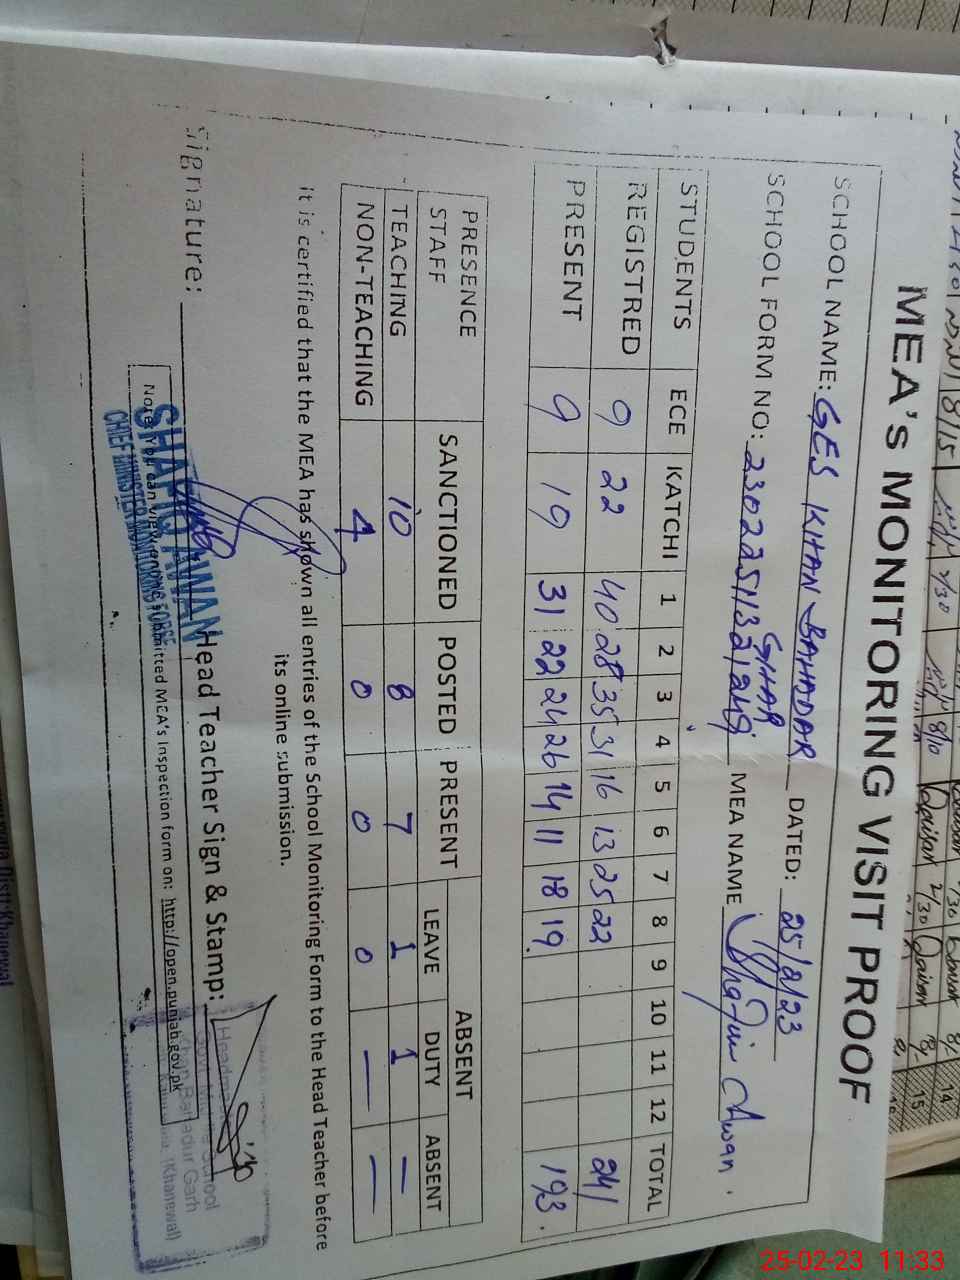 MEA's MONITORING VISIT PROOF
SCHOOL NAME: GES KHAN BAHADAR DATED: 25/2/23
GHAR
SCHOOL FORM NO: MEA NAME Shafiq Awan.
STUDENTS ECE KATCHI 1 2 3 4 5 6 7 8 9 10 11 12 TOTAL
REGISTRED 9 22 40 28 35 31 16 13 25 22 241
PRESENT 9 19 31 22 24 26 14 11 18 19 193.
PRESENCE STAFF SANCTIONED POSTED PRESENT ABSENT
LEAVE DUTY ABSENT
TEACHING 10 8 7 1 1 —
NON-TEACHING 4 0 0 0 — —
it is certified that the MEA has shown all entries of the School Monitoring Form to the Head Teacher before
its online submission.
Signature: Head Teacher Sign & Stamp:
SHAFIQ AWAN
CHIEF MINISTER MONITORING FORCE
Note: You can view submitted MEA's Inspection form on: http://open.punjab.gov.pk
School
Khan Bahadur Garh
(Khanewal)
25-02-23 11:33